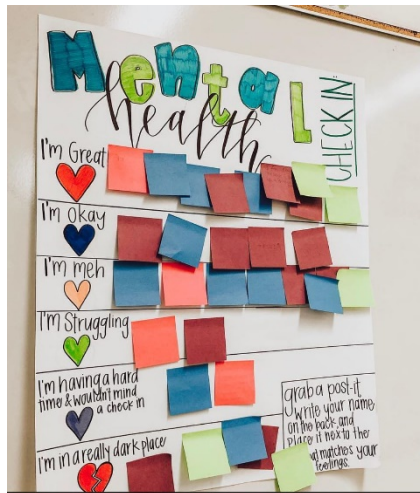 Mental
health
CHECK IN:
I'm Great
I'm Okay
I'm meh
I'm Struggling
I'm having a hard
time & wouldn't mind
a check in
I'm in a really dark place
grab a post-it,
write your name
on the back, and
place it next to the
matches your
feelings.